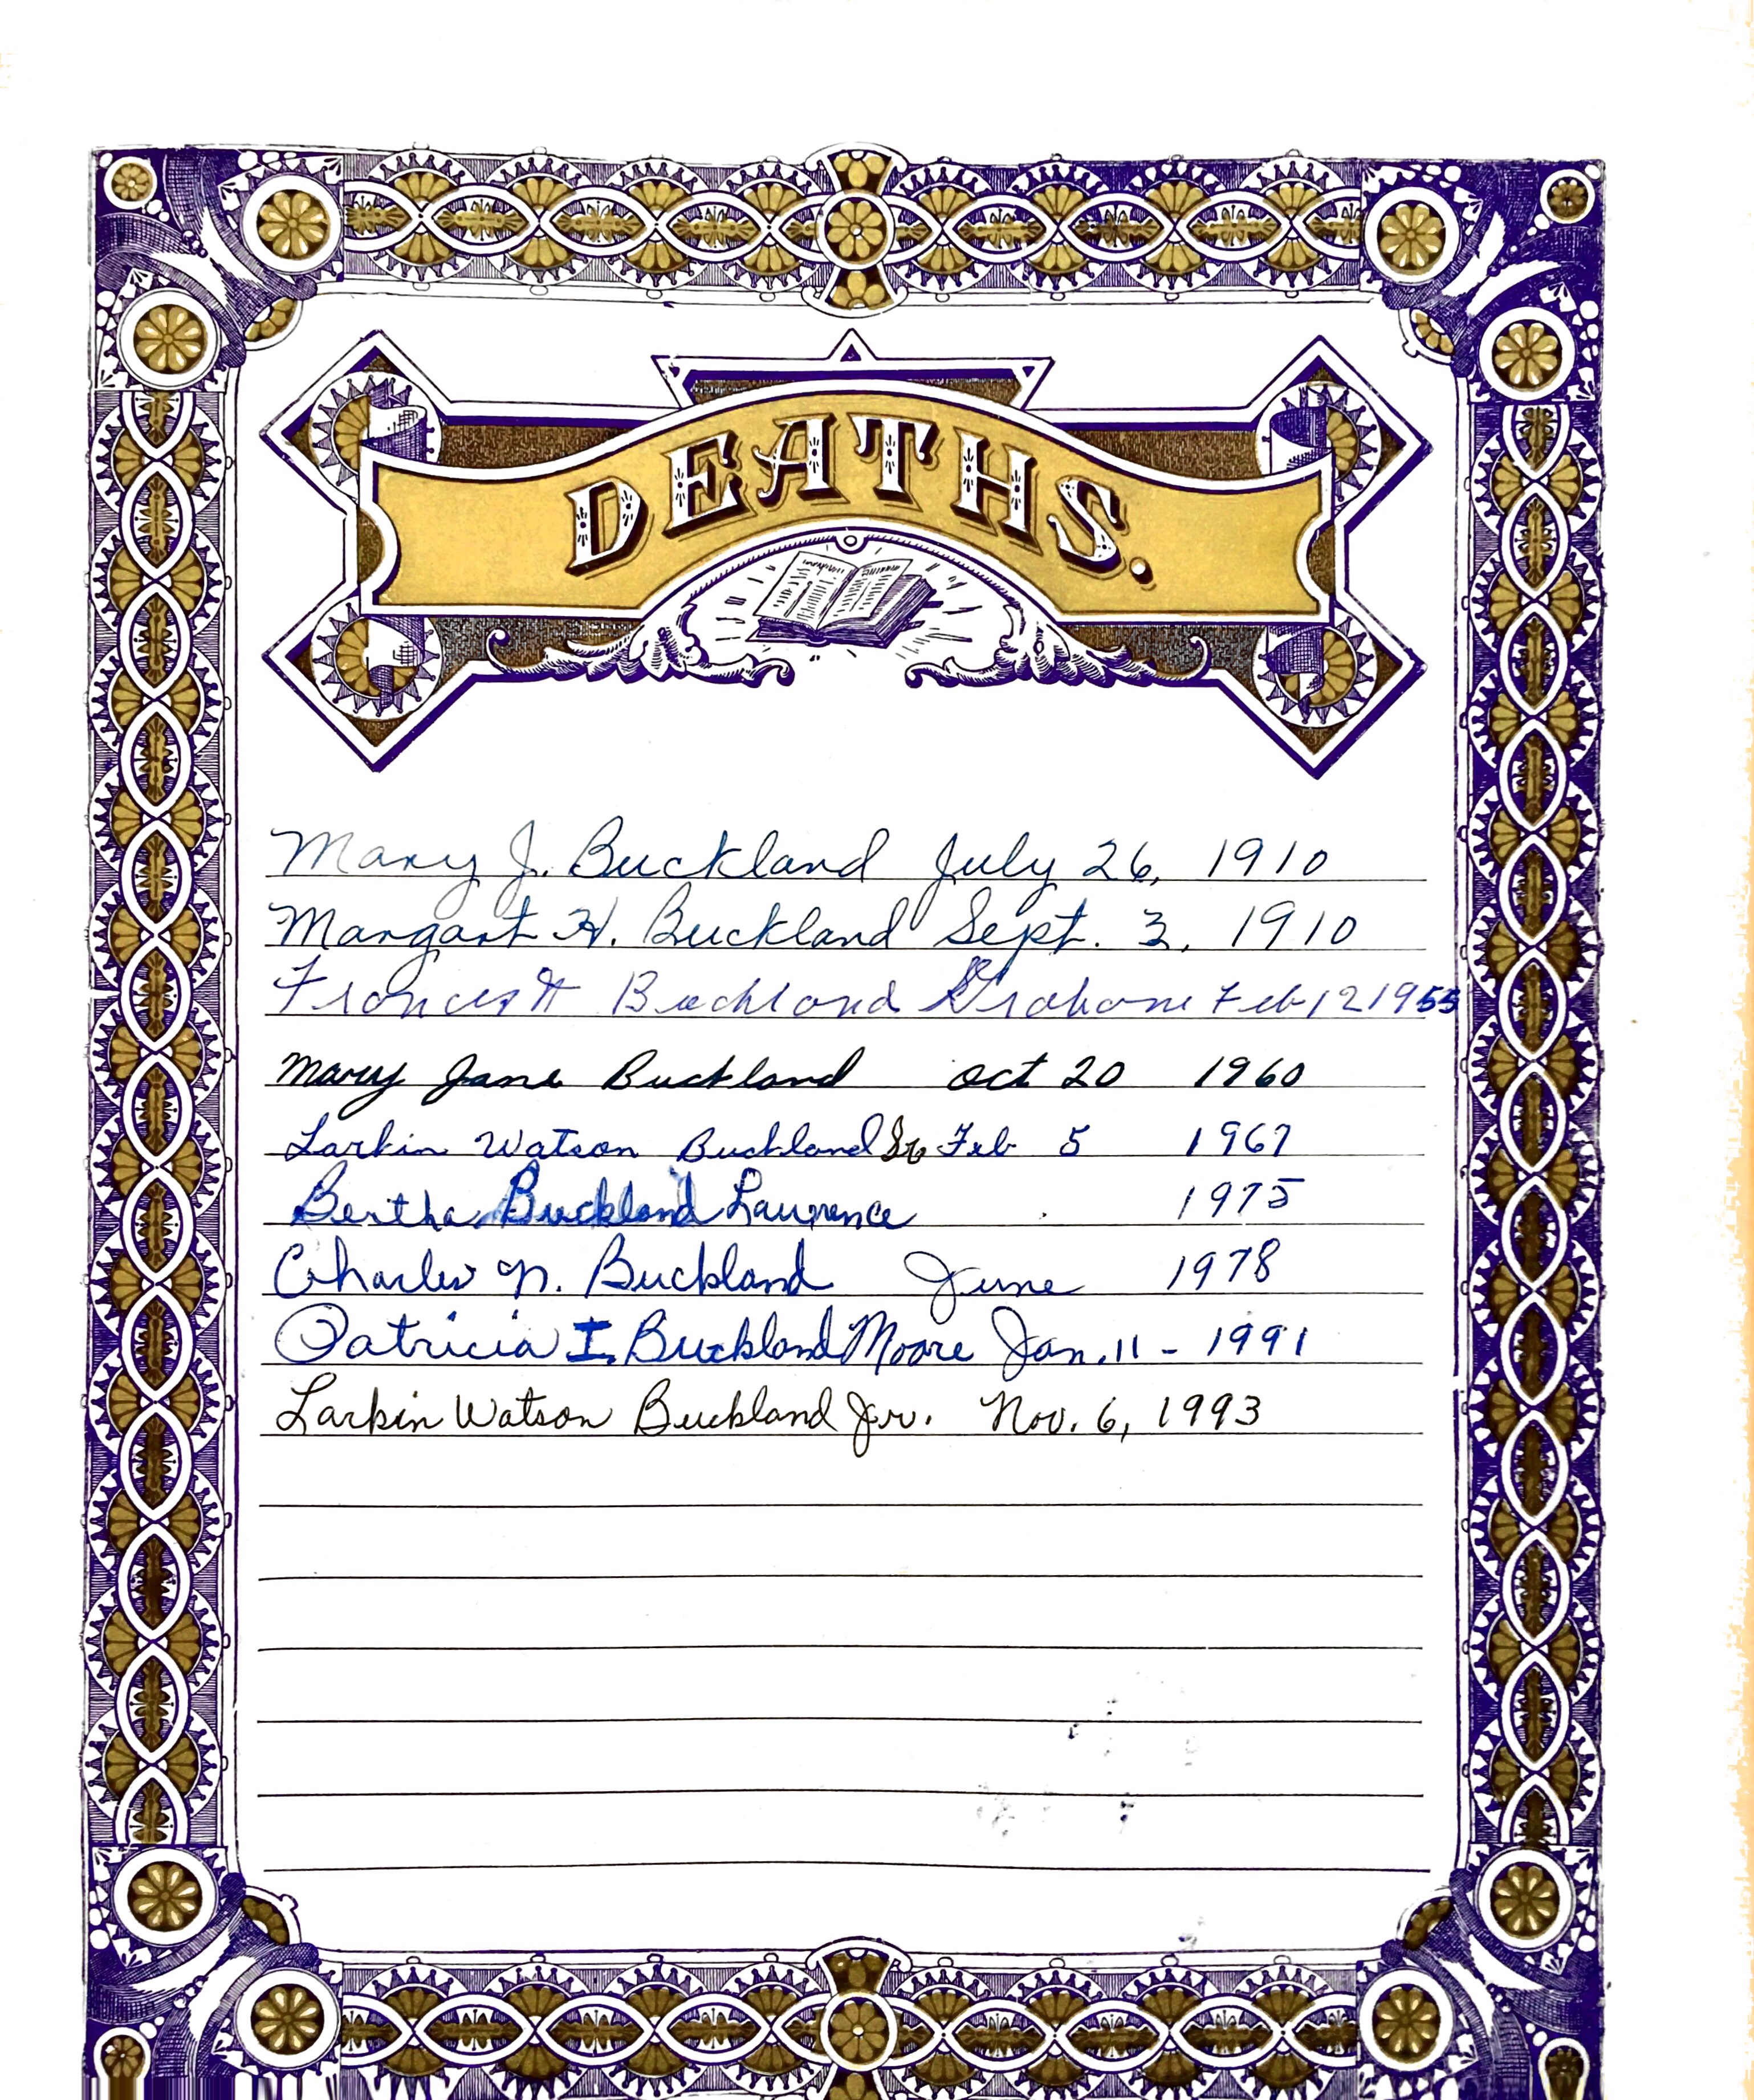 DEATHS.
Mary J. Buckland July 26, 1910
Margart H. Buckland Sept. 3, 1910
Frances H Buckland Grahame Feb 12 1955
Mary Jane Buckland Oct 20 1960
Larkin Watson Buckland Sr Feb 5 1967
Bertha Buckland Laurence 1975
Charles N. Buckland June 1978
Patricia I. Buckland Moore Jan. 11 - 1991
Larkin Watson Buckland Jr. Nov. 6, 1993